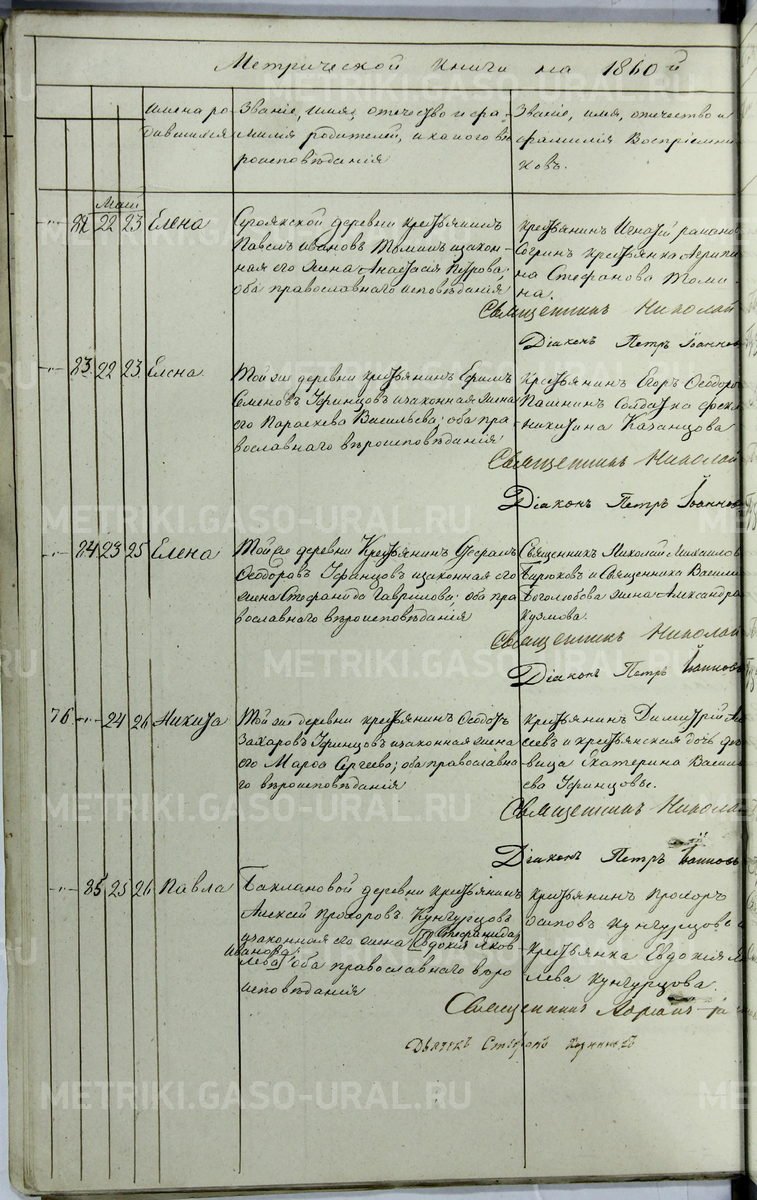 Метрической книги на 1860й
имена ро
дившихся
Званіе, имя, отчество и фа
милія родителей, и какого вѣ
роисповѣданія
Званіе, имя, отчество и
фамилія Воспріемни
ковъ.
Маій
82 22 23 Елена
деревни крестьянинъ
Павелъ Ивановъ Томинъ и закон
ная его жена Анастасія Петрова,
оба православнаго исповѣданія
крестьянинъ Игнатій
крестьянка Агрипи
на Стефанова Томи
на.
Священникъ Николай
Діаконъ Петръ Іоанновъ
83 22 23 Елена
Той же деревни крестьянинъ Ефимъ
Семеновъ Уфинцовъ и законная жена
его Параскева Васильева; оба пра
вославнаго вѣроисповѣданія
крестьянинъ Егоръ Ѳеодоро
Пашнинъ Солдатка
Никитина Казанцова
Священникъ Николай
Діаконъ Петръ Іоанновъ
84 23 25 Елена
Той же деревни Крестьянинъ
Ѳеодоровъ Уфинцовъ и законная его
жена Стефанида Гаврилова; оба пра
вославнаго вѣроисповѣданія
Священникъ Николай Михаилов
Бирюковъ и Священника Васили
Боголюбова жена Александра
Кузмова.
Священникъ Николай
Діаконъ Петръ Іоанновъ
76 24 26 Никита
Той же деревни крестьянинъ Ѳеодотъ
Захаровъ Уфинцовъ и законная жена
его Марѳа Сергеева; оба православна
го вѣроисповѣданія
крестьянинъ Димитрій
сеевъ и крестьянская дочь дѣ
вица Екатерина Василь
ева Уфинцовы.
Священникъ Николай
Діаконъ Петръ Іоанновъ
85 25 26 Павла
Баклановой деревни крестьянинъ
Алексѣй Прохоровъ Кунгурцовъ
Стефанида
и законная его жена Евдокія Яков
Иванова
лева оба православнаго вѣро
исповѣданія
крестьянинъ Прохоръ
Осиповъ Кунгурцовъ и
крестьянка Евдокія Як
лева Кунгурцова.
Священникъ
Дьячекъ
METRIKI.GASO-URAL.RU